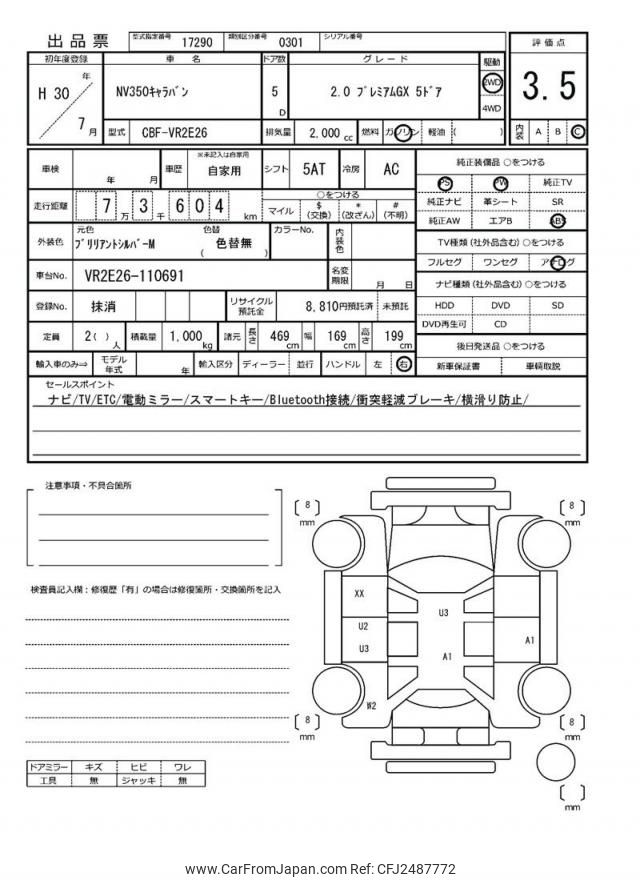 出品票
型式指定番号 17290 類別区分番号 0301 シリアル番号
初年度登録 車名 ドア数 グレード 駆動 評価点
H 30 年 7 月 NV350ｷｬﾗﾊﾞﾝ 5 D 2.0 ﾌﾟﾚﾐｱﾑGX 5ﾄﾞｱ 2WD 4WD 3.5
型式 CBF-VR2E26 排気量 2,000 cc 燃料 ガソリン 軽油 ( ) 内装 A B C
車検 年 月 車歴 ※未記入は自家用 自家用 シフト 5AT 冷房 AC
走行距離 7 万 3 千 6 0 4 km
○をつける
マイル $ (交換) * (改ざん) # (不明)
外装色 元色 ﾌﾞﾘﾘｱﾝﾄｼﾙﾊﾞｰM 色替 ( 色替無 ) カラーNo. 内装色
車台No. VR2E26-110691 名変期限 月 日
登録No. 抹消 リサイクル預託金 8,810円預託済 未預託
定員 2( ) 人 積載量 1,000 kg 諸元 長さ 469 cm 幅 169 cm 高さ 199 cm
輸入車のみ⇒ モデル年式 年 輸入区分 ディーラー 並行 ハンドル 左 右
純正装備品 ○をつける
PS PW 純正TV
純正ナビ 革シート SR
純正AW エアB ABS
TV種類 (社外品含む) ○をつける
フルセグ ワンセグ アナログ
ナビ種類 (社外品含む) ○をつける
HDD DVD SD
DVD再生可 CD
後日発送品 ○をつける
新車保証書 車輌取説
セールスポイント
ナビ/TV/ETC/電動ミラー/スマートキー/Bluetooth接続/衝突軽減ブレーキ/横滑り防止/
注意事項・不具合箇所
検査員記入欄：修復歴「有」の場合は修復箇所・交換箇所を記入
ドアミラー キズ ヒビ ワレ
工具 無 ジャッキ 無
[ 8 ] mm
[ 8 ] mm
XX
U3
U2
U3
A1
A1
W2
[ 8 ] mm
[ 8 ] mm
[ ] mm
www.CarFromJapan.com Ref: CFJ2487772